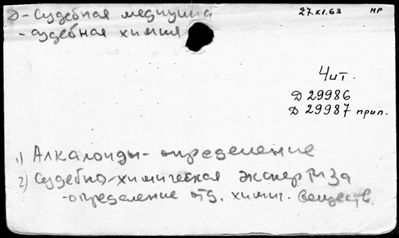 д - Судебная медицина
27.XI.63 НР
- судебная химия
Чит.
Д 29986
Д 29987 прил.
1) Алкалоиды - определение
2) Судебно-химическая экспертиза
- определение отд. химич. веществ